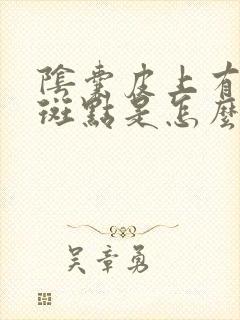 陰囊皮上有
斑點是怎麼
吴章勇